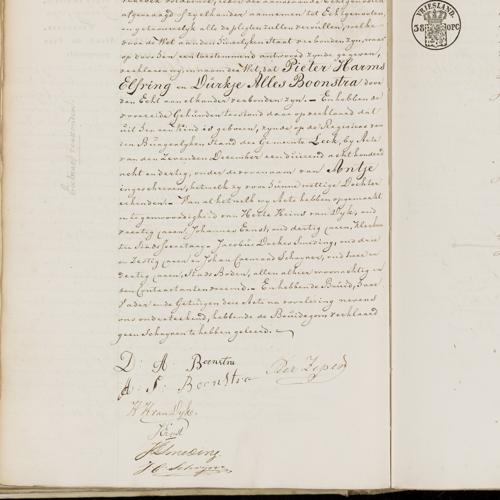 afgevraagd of zij elkander aannemen tot Echtgenooten,
en getrouwelijk alle de pligten zullen vervullen, welke
door de Wet aan den Huwelyken Staat verbonden zyn, waar
op door hen een toestemmend antwoord zynde gegeven,
verklaaren wy in naam der Wet, dat Pieter Harms
Elfring en Durkje Alles Boonstra door
den Echt aan elkander verbonden zyn. – En hebben de
voorzeide Gehuwden teesstond daar op verklaard dat
uit hen een kind is geboren, zynde op de Registers van
den Burgerlyken Stand der Gemeente Leek, by Acte
van den Zevenden December een duizend achthonderd
acht en dertig, onder de voornaam van Antje
ingeschreven, hetwelk zy voor hunne wettige Dochter
erkenden. – Van al hetwelk wy Acte hebben opgemaakt
in tegenwoordigheid van Heere Heins van Dyk, oud
veertig jaren, Johannes Ernst, oud dertig jaren, Klerken
ter Stads Secretary, Jacobus Doekes Smeding, oud drie
en Zestig jaren en Johan Coenraad Schryver, oud twee en
dertig jaren, Stads Boden, allen alhier woonachtig en
den Contractanten vreemd. – En hebben de Bruid, haar
Vader en de Getuigen deze Acte na voorlezing nevens
ons onderteekend, hebbende de Bruidegom verklaard
geen Schryven te hebben geleerd.
D: A: Boonstra
A: J: Boonstra
H H van Dyk.
J Ernst
JD Smeding
J C Schryver
VRIESLAND.
38 OPC